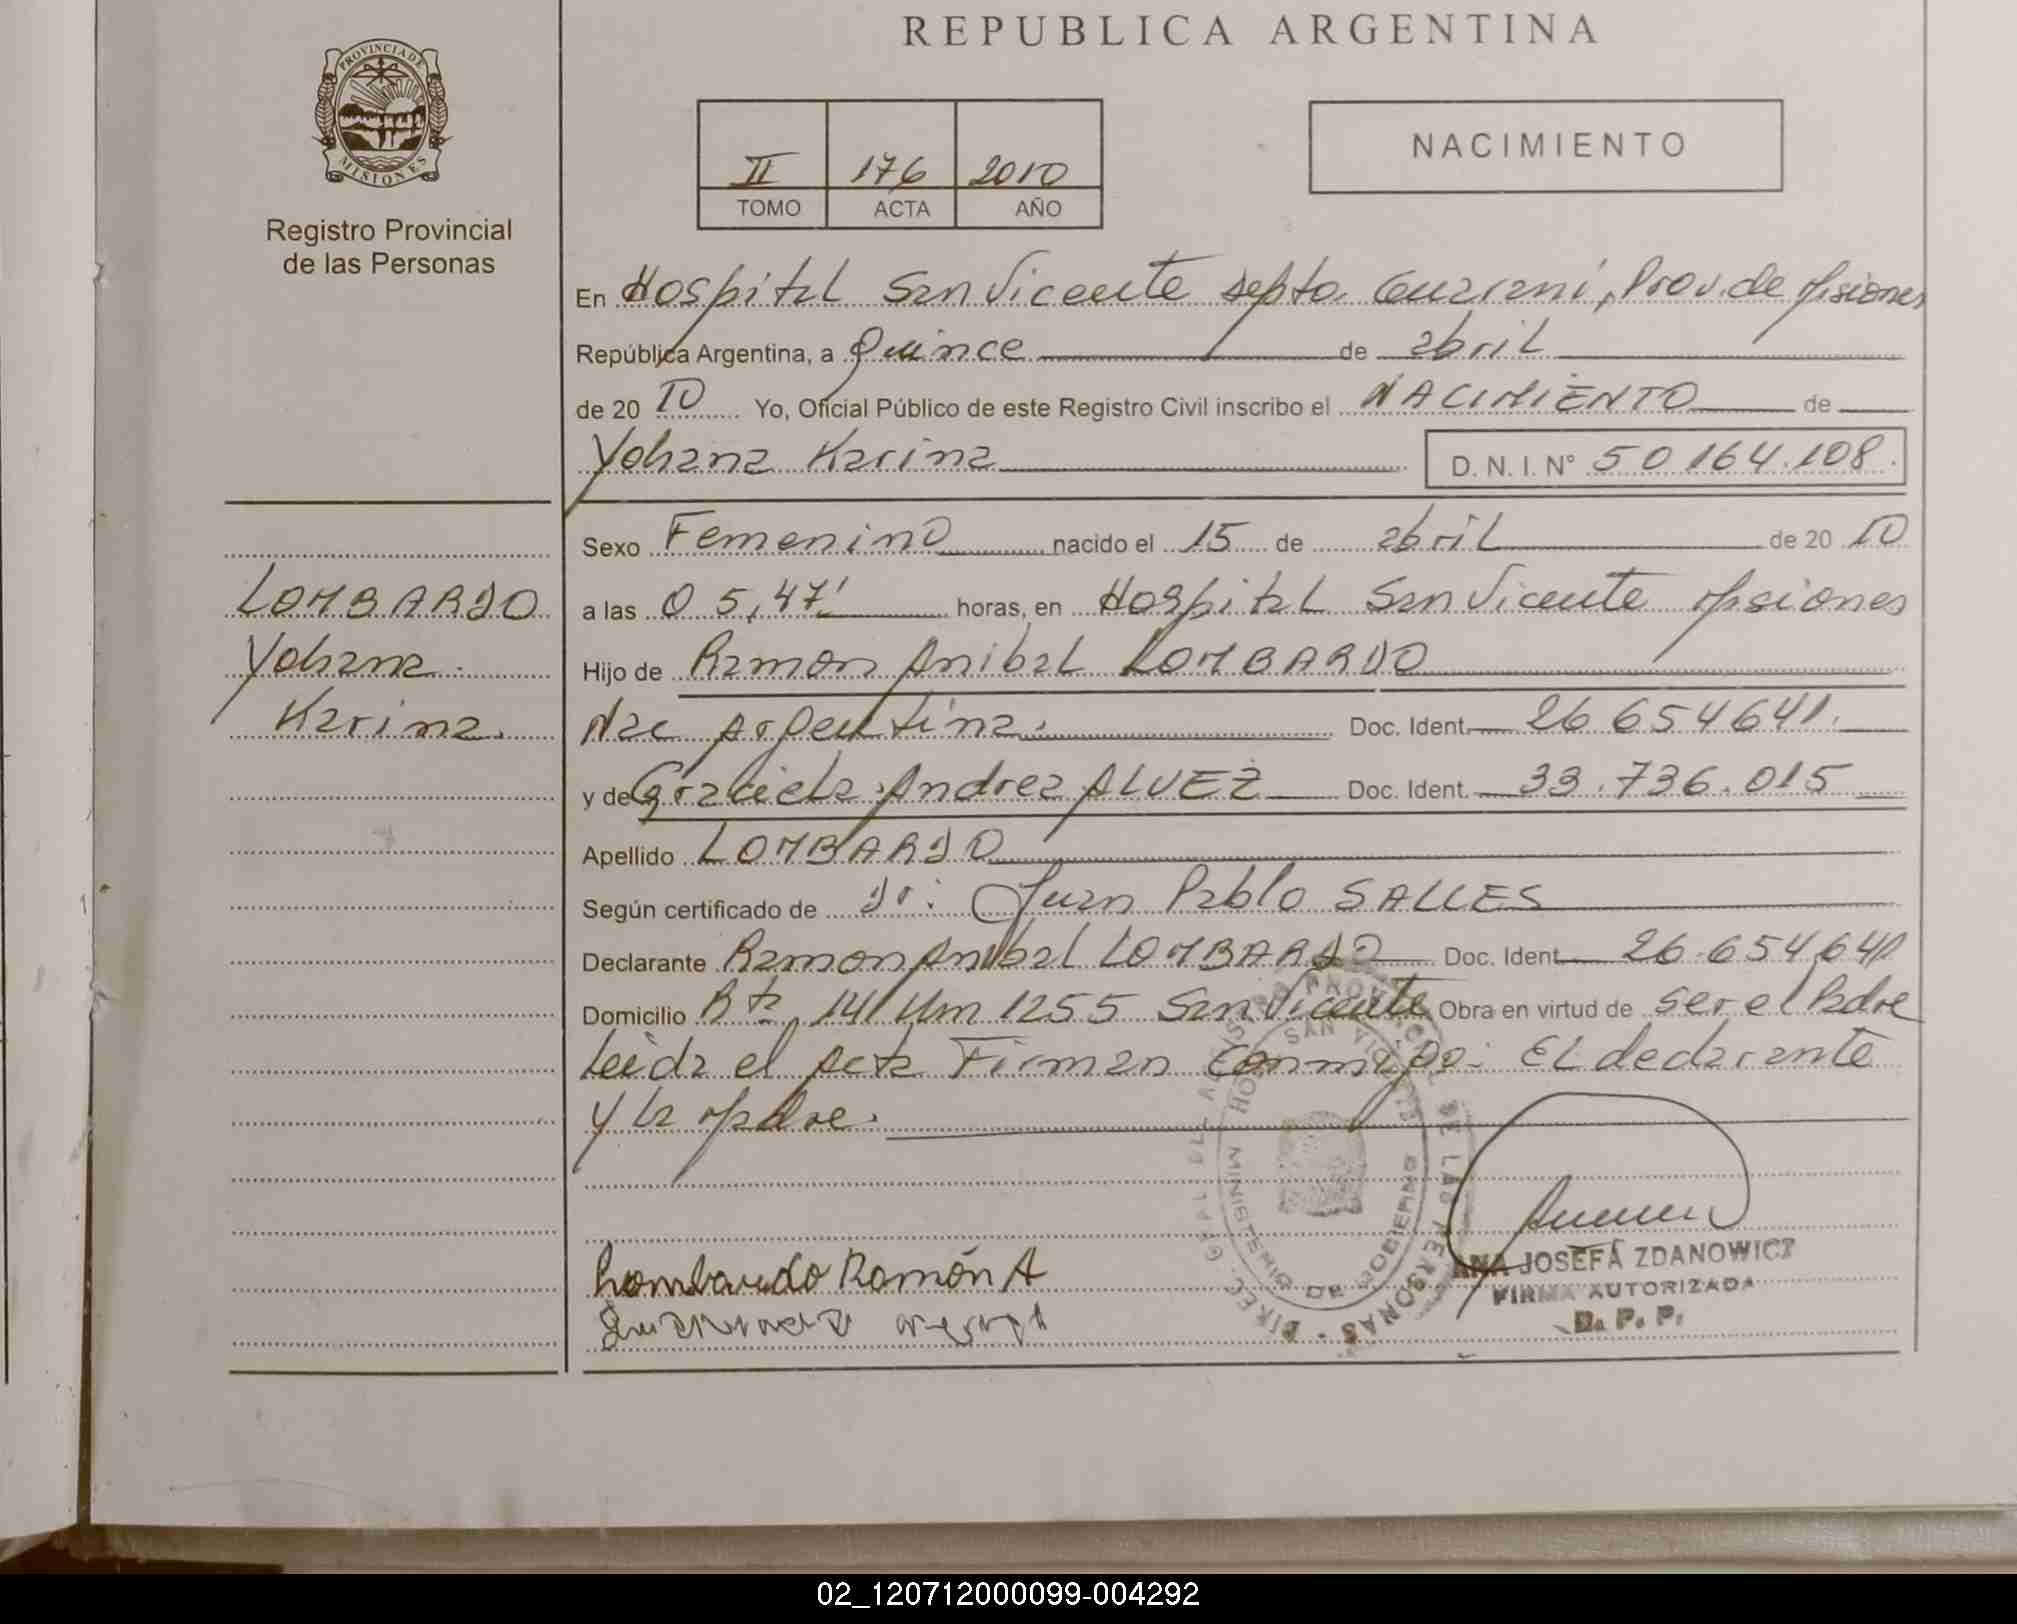 REPUBLICA ARGENTINA
PROVINCIA DE
MISIONES
Registro Provincial
de las Personas
II 176 2010
TOMO ACTA AÑO
NACIMIENTO
En Hospital San Vicente depto Guarani, Prov. de Misiones
República Argentina, a Quince de abril
de 20 10 Yo, Oficial Público de este Registro Civil inscribo el NACIMIENTO de
Yohana Karina D. N. I. N° 50 164.108
Sexo Femenino nacido el 15 de abril de 20 10
a las 05,47' horas, en Hospital San Vicente Misiones
Hijo de Ramon Anibal LOMBARDO
Nac Argentina. Doc. Ident. 26 654641.
y de Graciela Andrea ALVEZ Doc. Ident. 33.736.015
Apellido LOMBARDO
Según certificado de Dr: Juan Pablo SALLES
Declarante Ramon Anibal LOMBARDO Doc. Ident 26.654,641
Domicilio Rta 141 Km 1255 San Vicente Obra en virtud de ser el Padre
Leida el Acta Firman conmigo: El declarante
y la Madre.
LOMBARDO
Yohana
Karina.
Lombardo Ramón A
ANA JOSEFA ZDANOWICZ
FIRMA AUTORIZADA
D. P. P.
HOSPITAL SAN VICENTE
MINISTERIO DE GOBIERNO
DE LAS PERSONAS
02_120712000099-004292